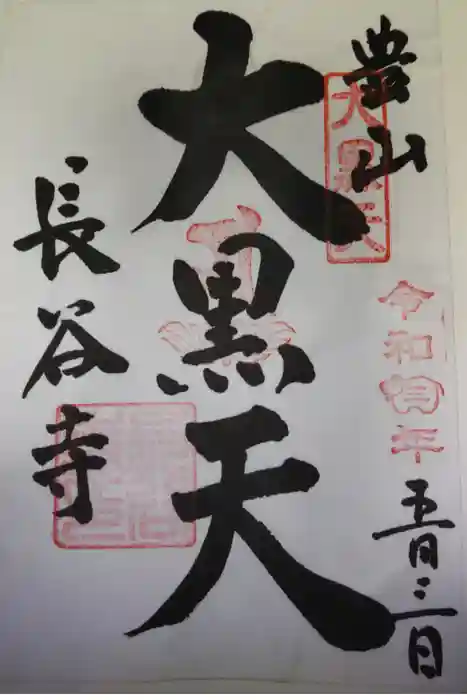 豊山
大黒天
令和 年
五月三日
大黒天
長谷寺